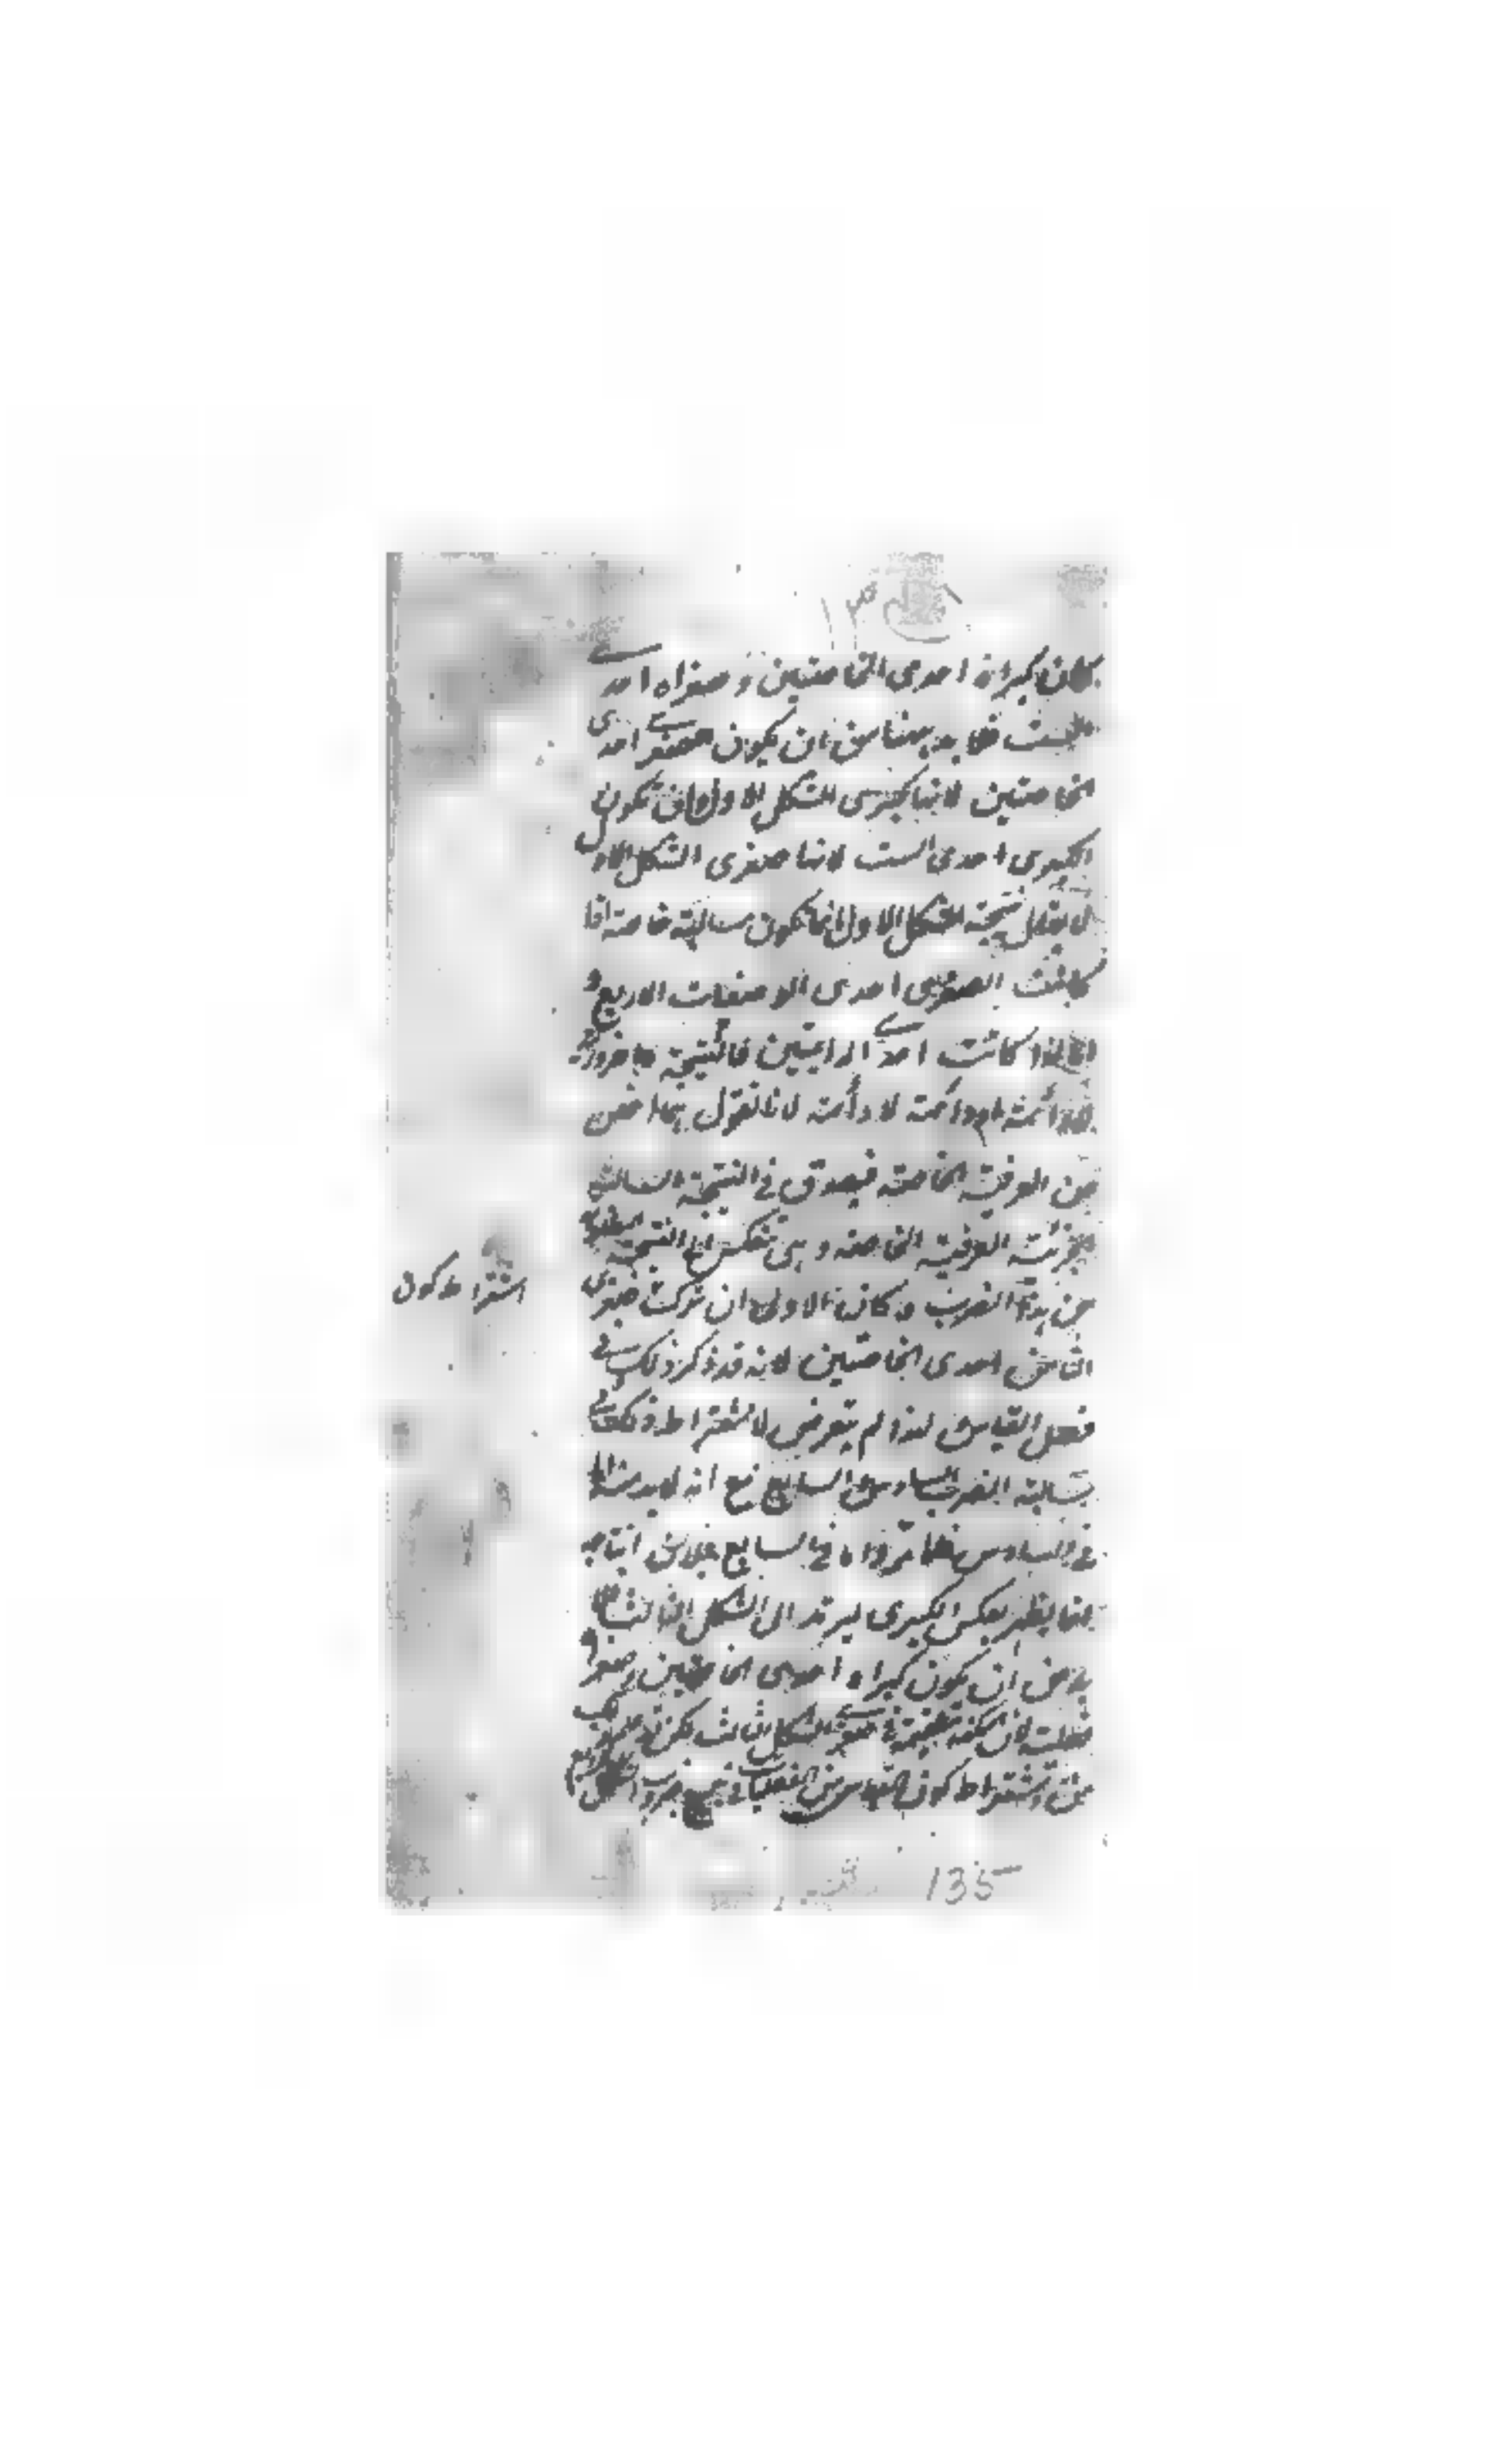 كان كبراه احدى الخاصتين وصغراه احدى
الست فلا بد ههنا من ان يكون الصغرى احدى
الخاصتين لانها كبرى الشكل الاول وان تكون
الكبرى احدى الست لانها صغرى الشكل الاول
لا يقال نتيجة الشكل الاول انما تكون سالبة خاصة اذا
كانت الصغرى احدى الوصفيات الاربع و
اما اذا كانت احدى الدايمتين فالنتيجة ضرورية
لادائمة او دائمة لا دائمة لانا نقول هما اخص
من العرفية الخاصة فيصدق في النتيجة السالبة
الجزئية العرفية الخاصة وهي تنعكس الى النتيجة المطلوبة
من هذا الضرب وكان الاولى ان تركت صغرى
الثامن احدى الخاصتين لانه قد ذكر ذلك في
فعل القياس لذا لم يتعرض لاشتراط ذلك في
سالبة الضرب السادس السابع مع انه لا بد
في السادس واما في السابع فلان انتاجه
انما يظهر بعكس الكبرى ليرتد الى الشكل الثالث
بد من ان يكون كبراه احدى الخاصتين وصغراه
فعلية لان الشكل الثالث لكن
من اشتراط كون القياس من الفعليات في جميع ضروب الشكل الرابع
اشتراط كون
135